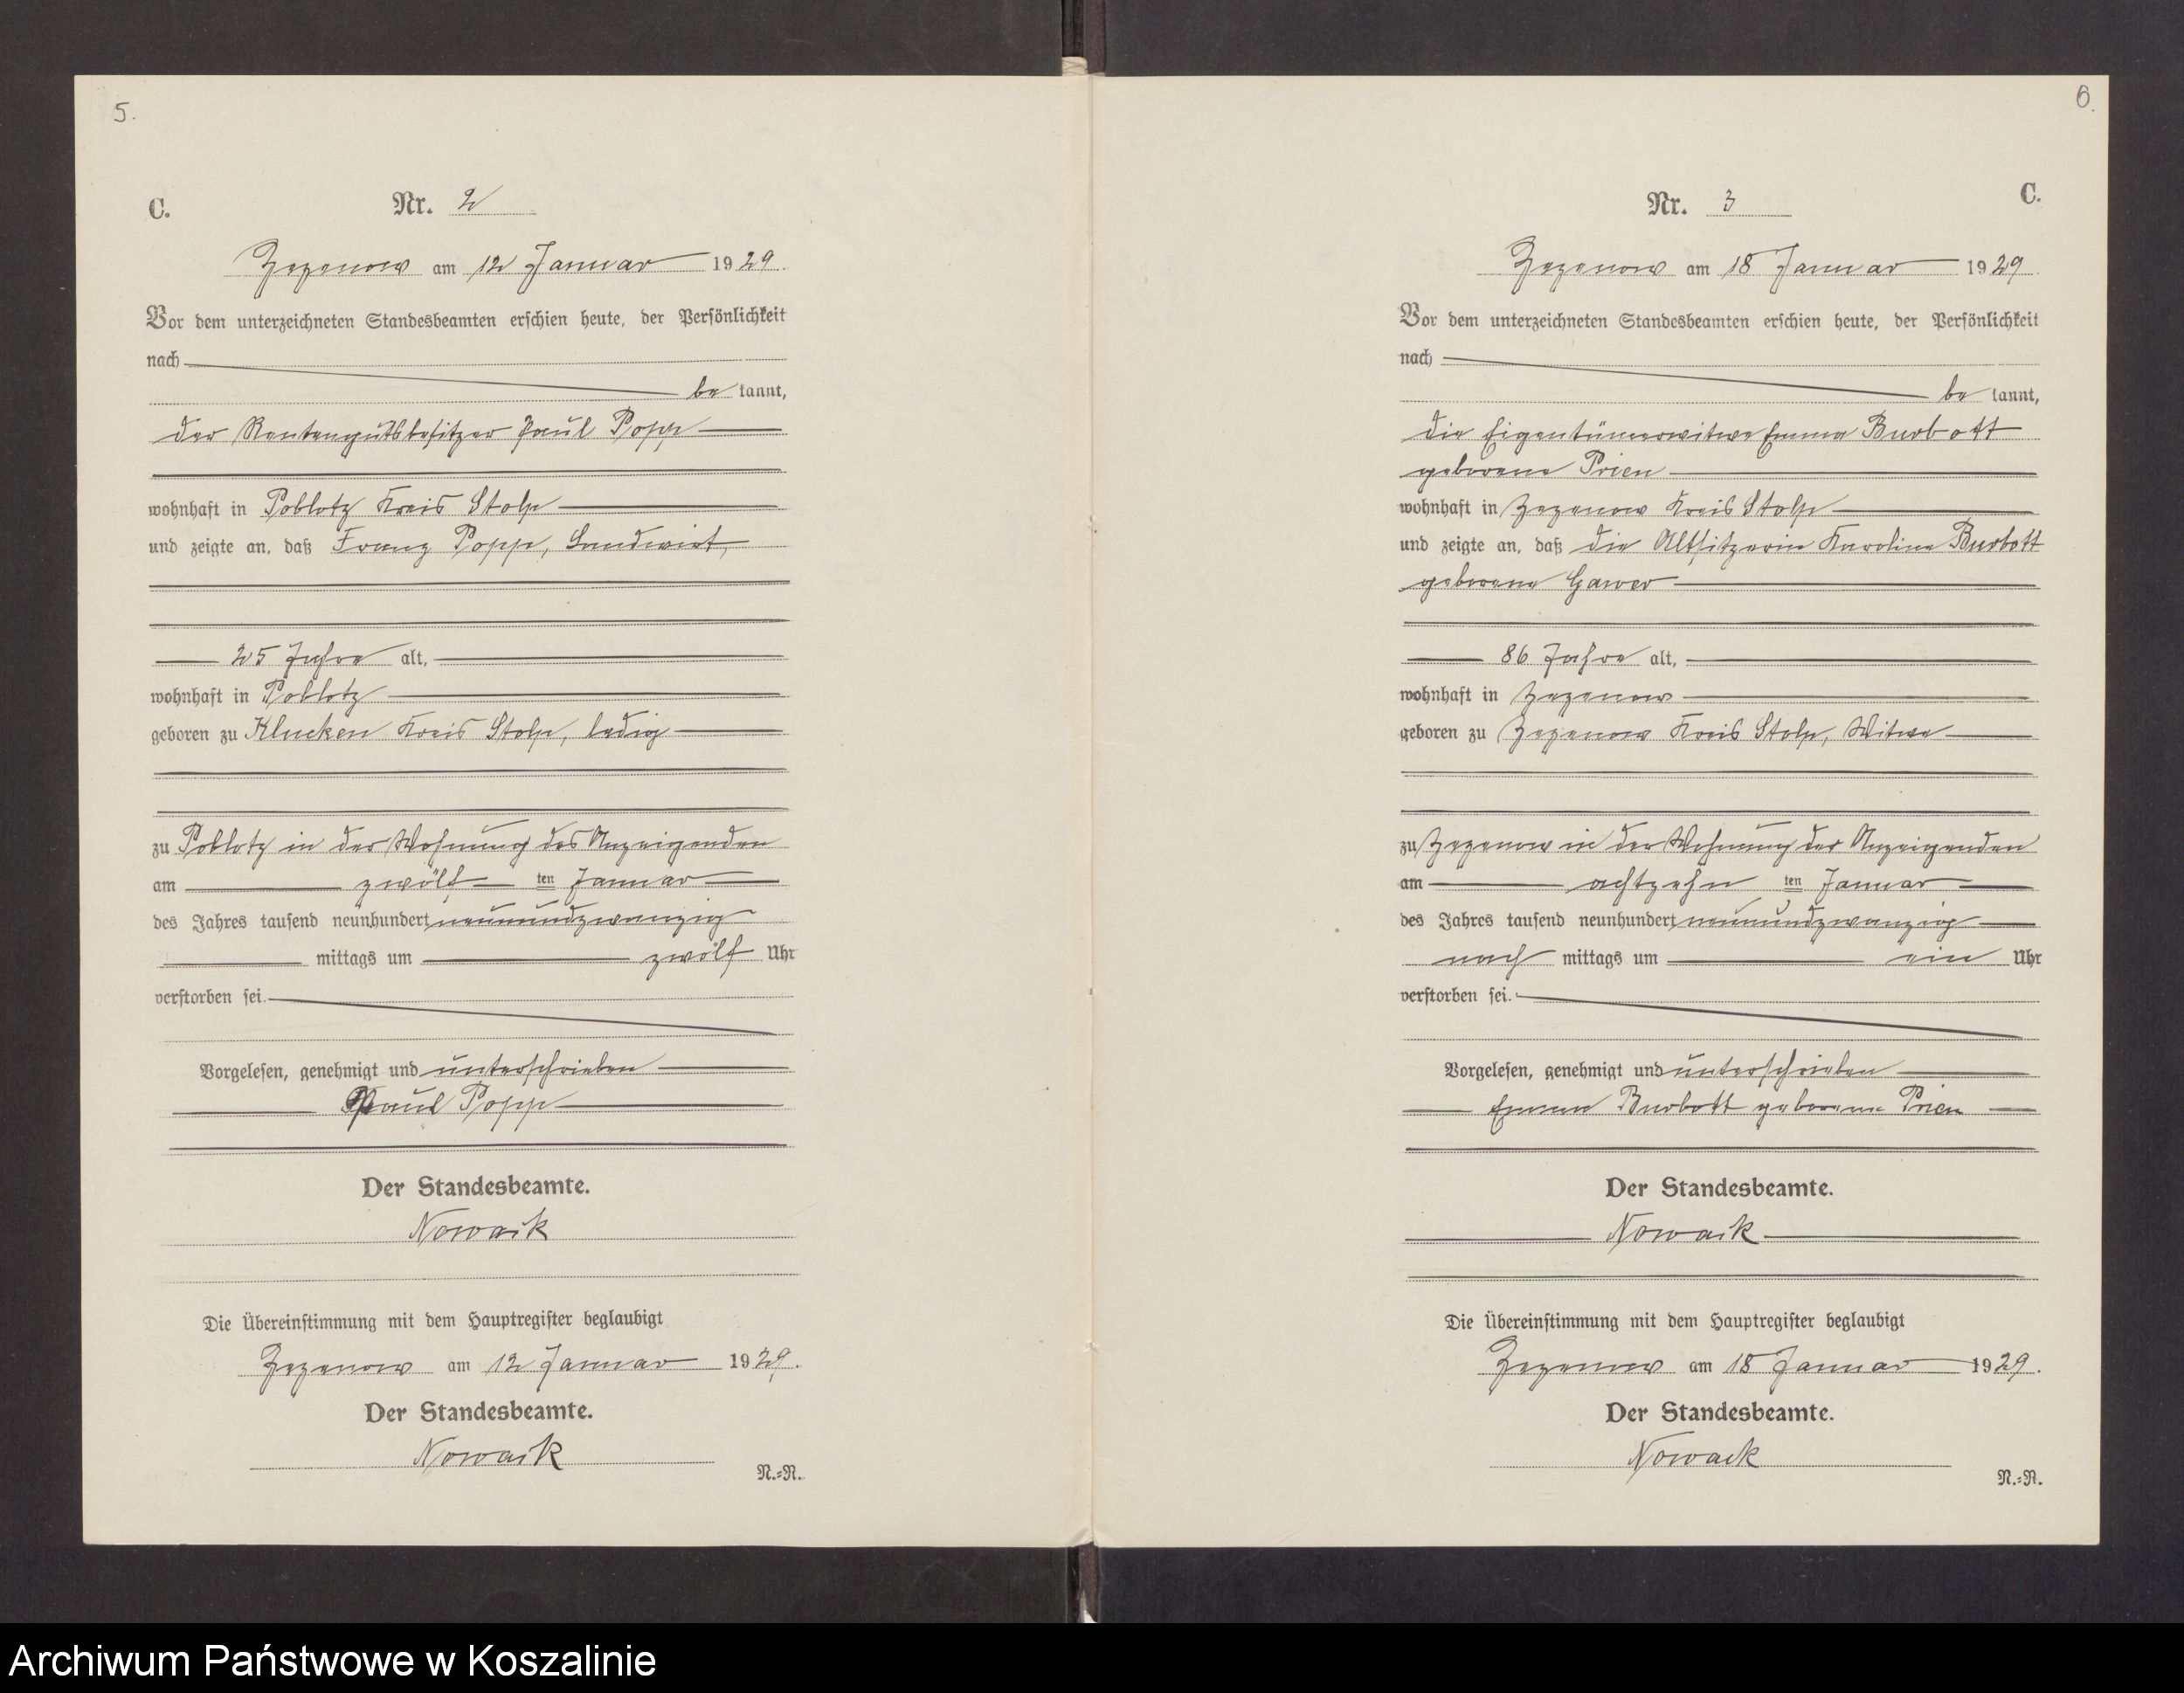 5.
C.
Nr. 2
Zezenow am 12 Januar 1929.
Vor dem unterzeichneten Standesbeamten erschien heute, der Persönlichkeit
nach
bekannt,
der Rentengutsbesitzer Paul Popp
wohnhaft in Poblotz Kreis Stolp
und zeigte an, daß Franz Popp, Landwirt,
25 Jahre alt,
wohnhaft in Poblotz
geboren zu Klucken Kreis Stolp, ledig
zu Poblotz in der Wohnung des Anzeigenden
am zwölf ten Januar
des Jahres tausend neunhundert neunundzwanzig
mittags um zwölf Uhr
verstorben sei.
Vorgelesen, genehmigt und unterschrieben
Paul Popp
Der Standesbeamte.
Nowack
Die Übereinstimmung mit dem Hauptregister beglaubigt
Zezenow am 12 Januar 1929.
Der Standesbeamte.
Nowack
N.=R.
6.
C.
Nr. 3
Zezenow am 18 Januar 1929.
Vor dem unterzeichneten Standesbeamten erschien heute, der Persönlichkeit
nach
bekannt,
die Eigentümerwitwe Emma Burbott
geborene Prien
wohnhaft in Zezenow Kreis Stolp
und zeigte an, daß die Altsitzerin Karoline Burbott
geborene Gawer
86 Jahre alt,
wohnhaft in Zezenow
geboren zu Zezenow Kreis Stolp, Witwe
zu Zezenow in der Wohnung der Anzeigenden
am achtzehn ten Januar
des Jahres tausend neunhundert neunundzwanzig
nach mittags um ein Uhr
verstorben sei.
Vorgelesen, genehmigt und unterschrieben
Emma Burbott geborene Prien
Der Standesbeamte.
Nowack
Die Übereinstimmung mit dem Hauptregister beglaubigt
Zezenow am 18 Januar 1929.
Der Standesbeamte.
Nowack
N.=R.
Archiwum Państwowe w Koszalinie